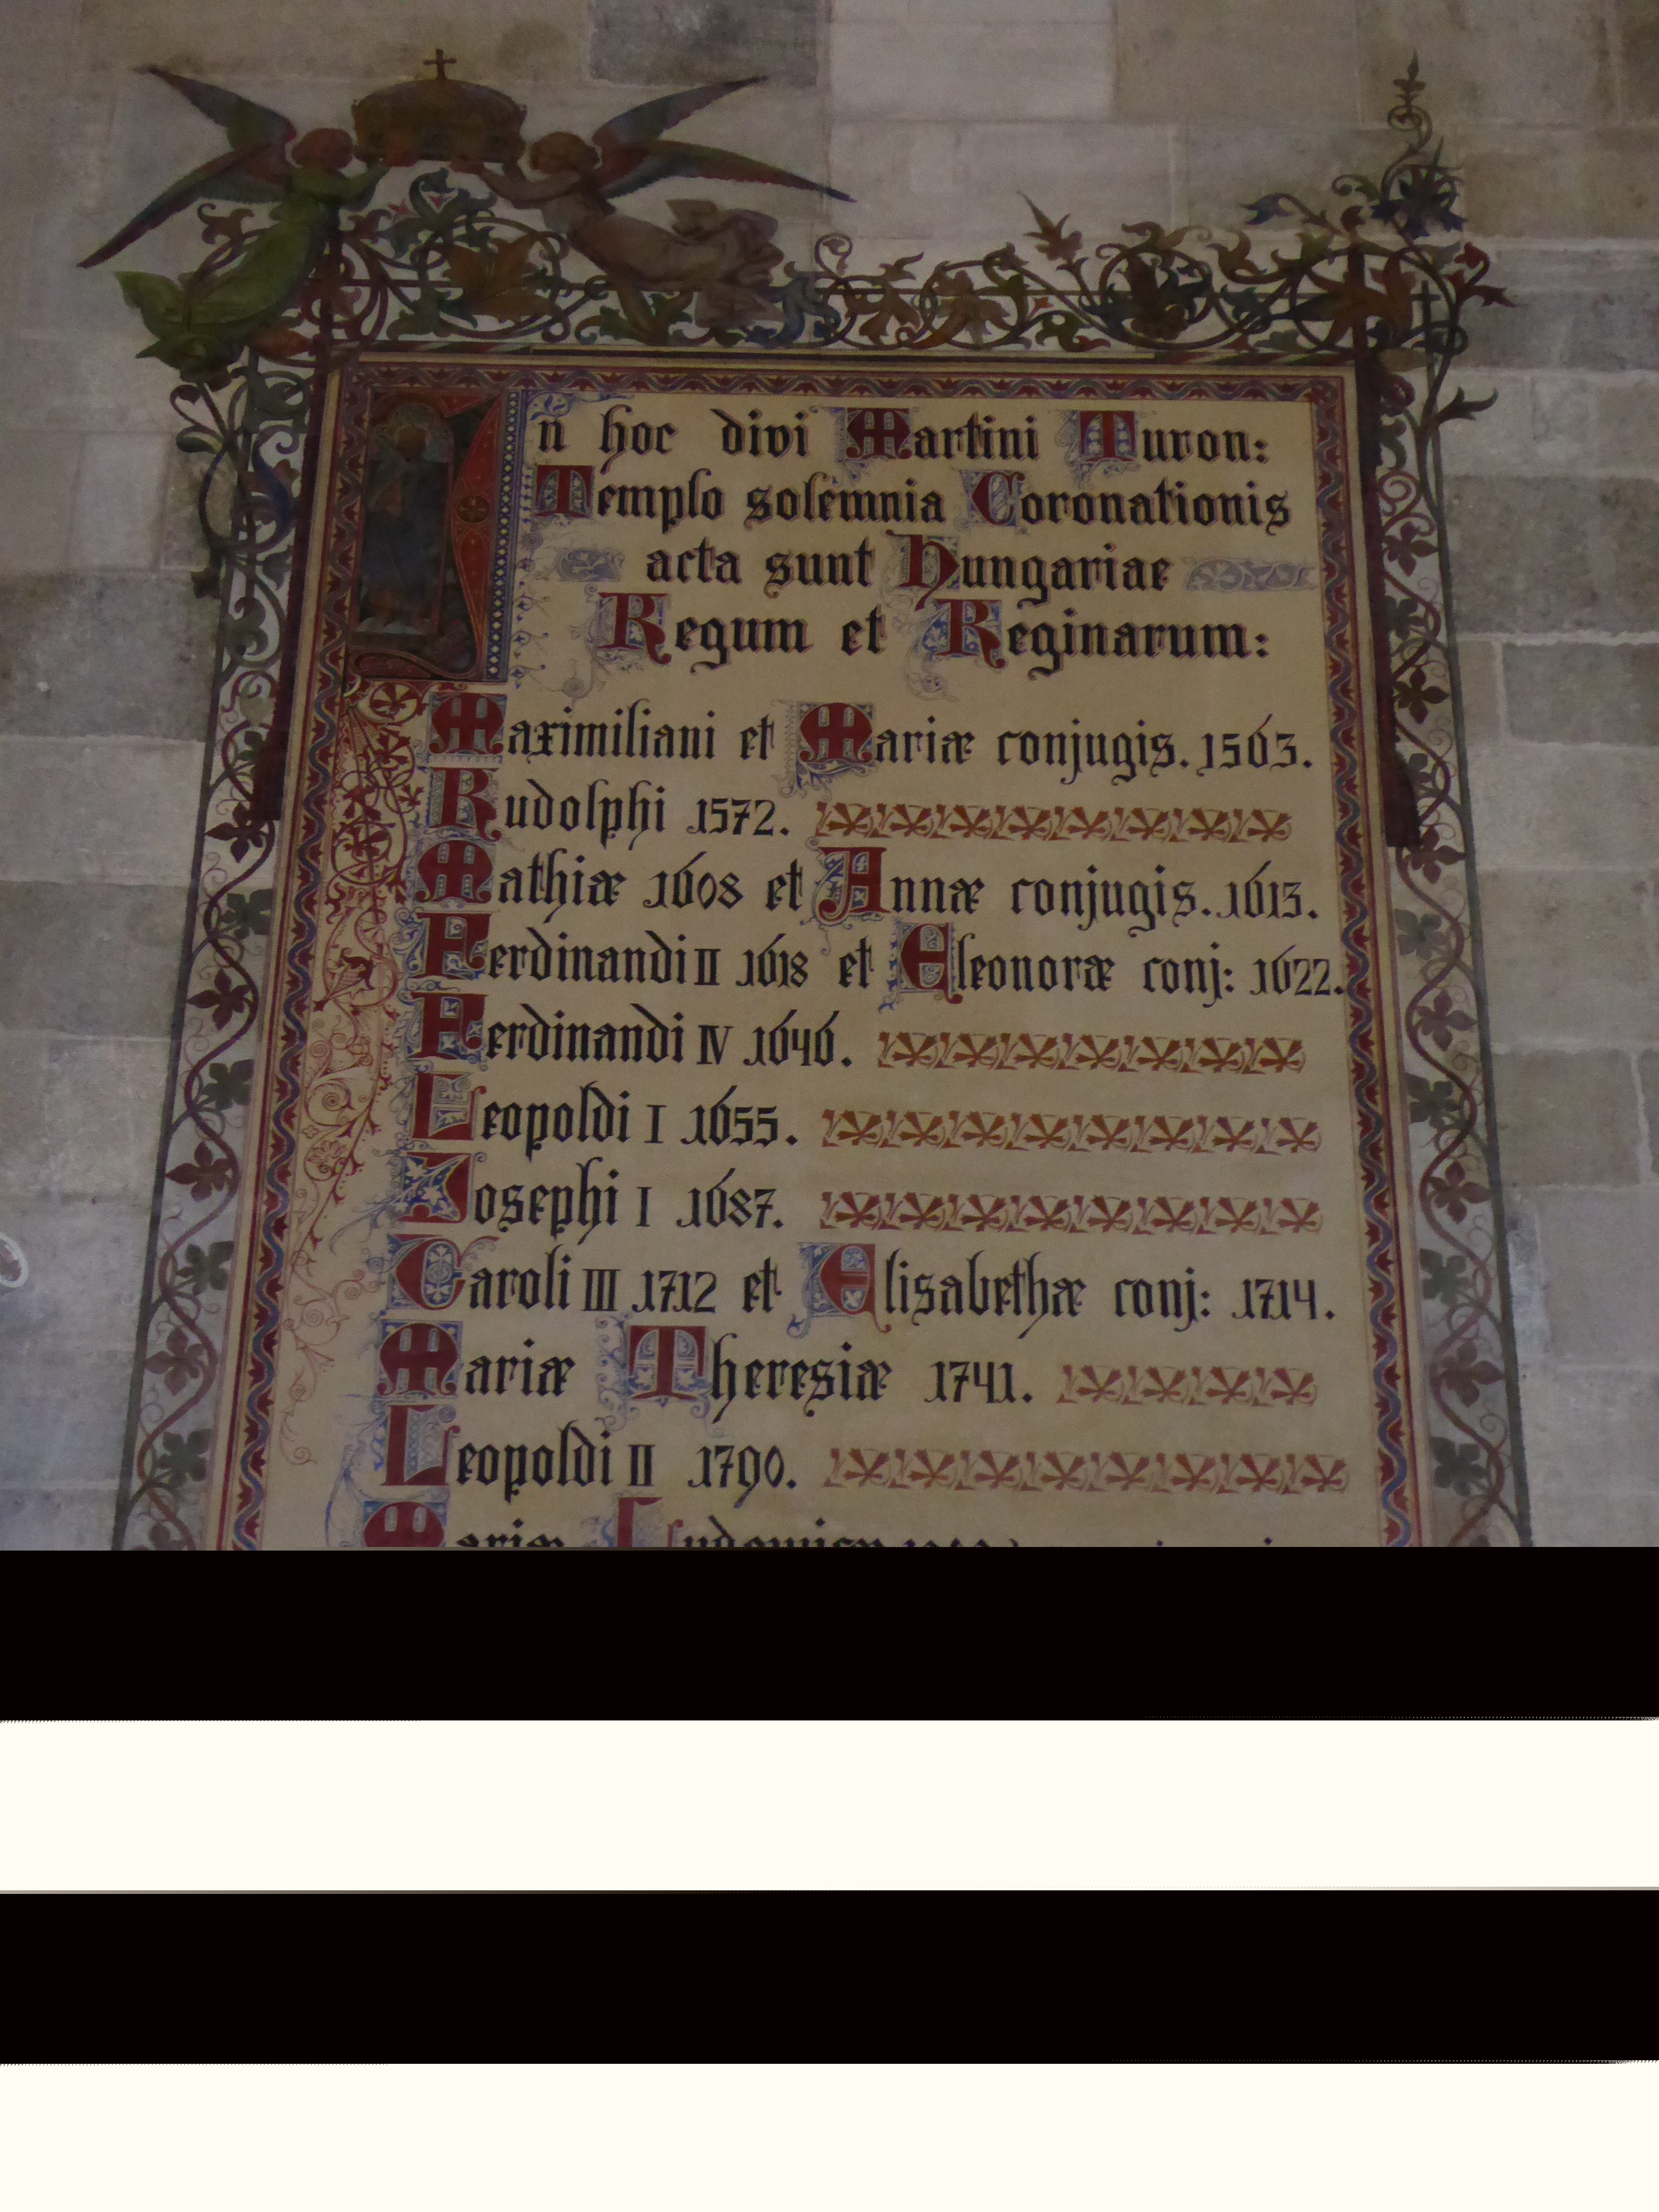 In hoc divi Martini Turon:
Templo solemnia Coronationis
acta sunt Hungariae
Regum et Reginarum:
Maximiliani et Mariæ conjugis. 1563.
Rudolphi 1572.
Mathiæ 1608 et Annæ conjugis. 1613.
Ferdinandi II 1618 et Eleonoræ conj: 1622.
Ferdinandi IV 1646.
Leopoldi I 1655.
Josephi I 1687.
Caroli III 1712 et Elisabethæ conj: 1714.
Mariæ Theresiæ 1741.
Leopoldi II 1790.
Mariæ